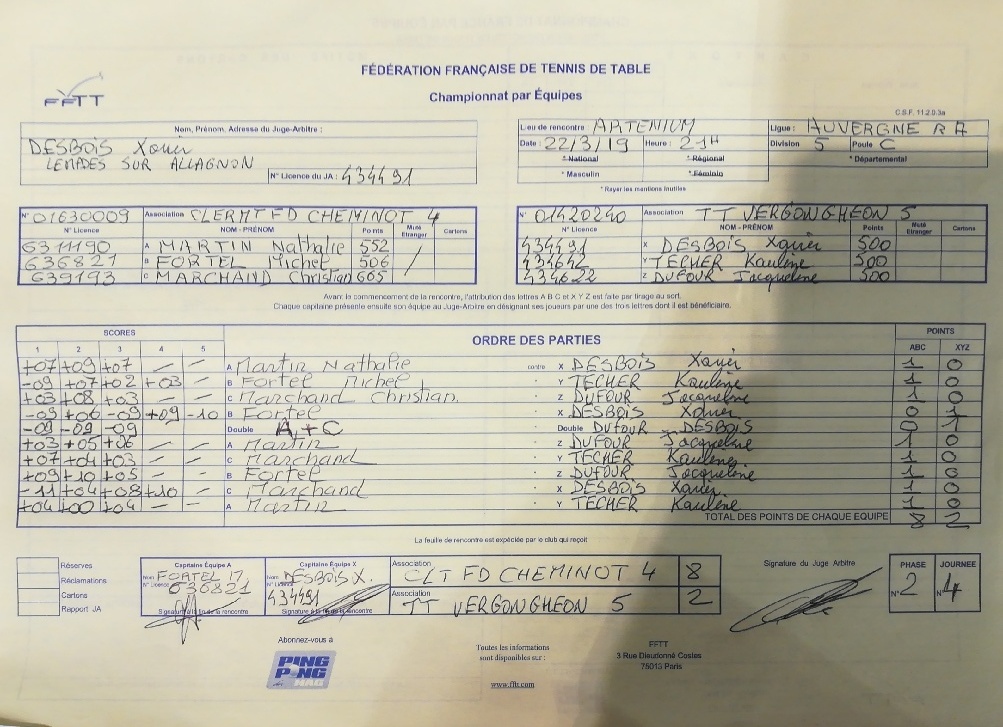 FÉDÉRATION FRANÇAISE DE TENNIS DE TABLE
FFTT
Championnat par Équipes
C.S.F. 11.2.0.3a
Nom, Prénom, Adresse du Juge-Arbitre :
DESBOIS Xavier
LEMPDES SUR ALLAGNON
N° Licence du JA : 434491
Lieu de rencontre ARTENIUM Ligue : AUVERGNE R A
Date : 22/3/19 Heure : 21H Division 5 Poule C
* National * Régional * Départemental
* Masculin * Féminin
* Rayer les mentions inutiles
N° 01630009 Association CLERMT FD CHEMINOT 4
N° Licence NOM - PRÉNOM Points Muté Etranger Cartons
6311190 A MARTIN Nathalie 552
636821 B FORTEL Michel 506
639193 C MARCHAND Christian 665
N° 01420240 Association TT VERGONGHEON 5
N° Licence NOM - PRÉNOM Points Muté Etranger Cartons
434491 X DESBOIS Xavier 500
434642 Y TECHER Kaulène 500
434622 Z DUFOUR Jacqueline 500
Avant le commencement de la rencontre, l'attribution des lettres A B C et X Y Z est faite par tirage au sort.
Chaque capitaine présente ensuite son équipe au Juge-Arbitre en désignant ses joueurs par une des trois lettres dont il est bénéficiaire.
SCORES ORDRE DES PARTIES POINTS
1 2 3 4 5 ABC XYZ
+07 +09 +07 — — A Martin Nathalie contre X DESBOIS Xavier 1 0
-09 +07 +02 +03 — B Fortel Michel Y TECHER Kaulène 1 0
+03 +08 +03 — — C Marchand Christian Z DUFOUR Jacqueline 1 0
-09 +06 -09 +09 -10 B Fortel X DESBOIS Xavier 0 1
-09 -09 -09 Double A+C Double DUFOUR DESBOIS 0 1
+03 +05 +06 — — A Martin Z DUFOUR Jacqueline 1 0
+07 +04 +03 — — C Marchand Y TECHER Kaulène 1 0
+09 +10 +05 — — B Fortel Z DUFOUR Jacqueline 1 0
-11 +04 +08 +10 — C Marchand X DESBOIS Xavier 1 0
+04 +00 +04 — — A Martin Y TECHER Kaulène 1 0
TOTAL DES POINTS DE CHAQUE EQUIPE 8 2
La feuille de rencontre est expédiée par le club qui reçoit
Réserves
Réclamations
Cartons
Rapport JA
Capitaine Équipe A
Nom FORTEL M
N° Licence 636821
Signature à la fin de la rencontre
Capitaine Équipe X
Nom DESBOIS X.
N° Licence 434491
Signature à la fin de la rencontre
Association CLT FD CHEMINOT 4 8
Association TT VERGONGHEON 5 2
Signature du Juge Arbitre
PHASE JOURNEE
N° 2 N° 4
Abonnez-vous à
PING PONG MAG
Toutes les informations
sont disponibles sur :
www.fftt.com
FFTT
3 Rue Dieudonné Costes
75013 Paris